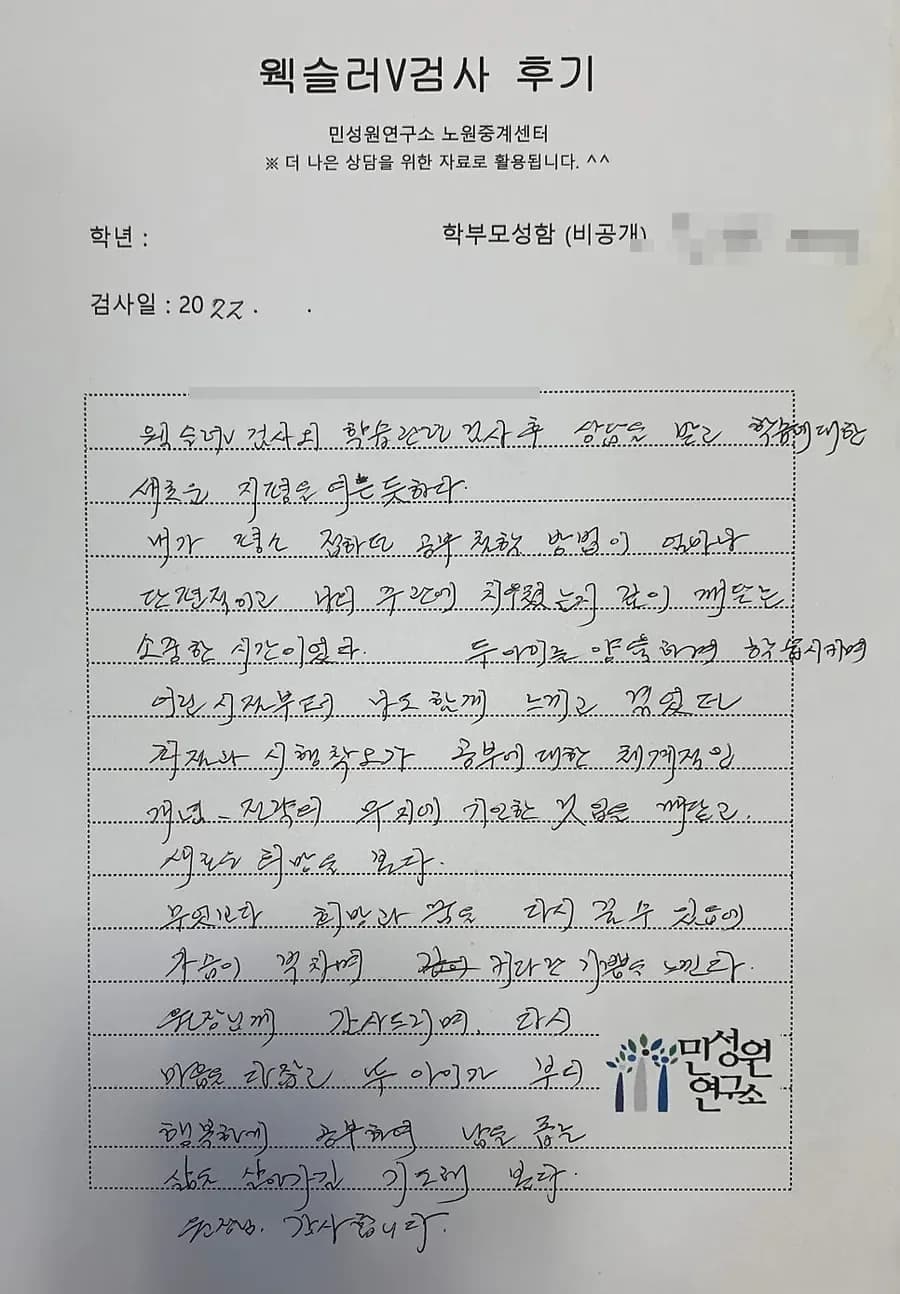 웩슬러V검사 후기
민성원연구소 노원중계센터
※ 더 나은 상담을 위한 자료로 활용됩니다. ^^
학년 :
학부모성함 (비공개)
검사일 : 2022. .
웩슬러V 검사외 학습관련 검사후 상담을 받고 학습에대한
새로운 지평을 여는 듯하다.
내가 평소 접하던 공부 방법이 얼마나
단편적이고 나의 주관에 치우쳤는지 깊이 깨닫는
소중한 시간이었다. 두아이를 양육하며 학습시키며
어린시절부터 남도 함께 느끼고 겪었던
좌절과 시행착오가 공부에 대한 체계적인
개념 - 전략의 무지에 기인한 것 임을 깨닫고,
새로운 희망을 본다.
무엇보다 희망과 꿈을 다시 꿀 수 있음에
가슴이 벅차며 커다란 기쁨을 느낀다.
원장님께 감사드리며, 다시
마음을 다잡고 두 아이가 부디
행복하게 공부하여 남을 돕는
삶을 살아가길 기도해 본다.
원장님. 감사합니다.
민성원
연구소